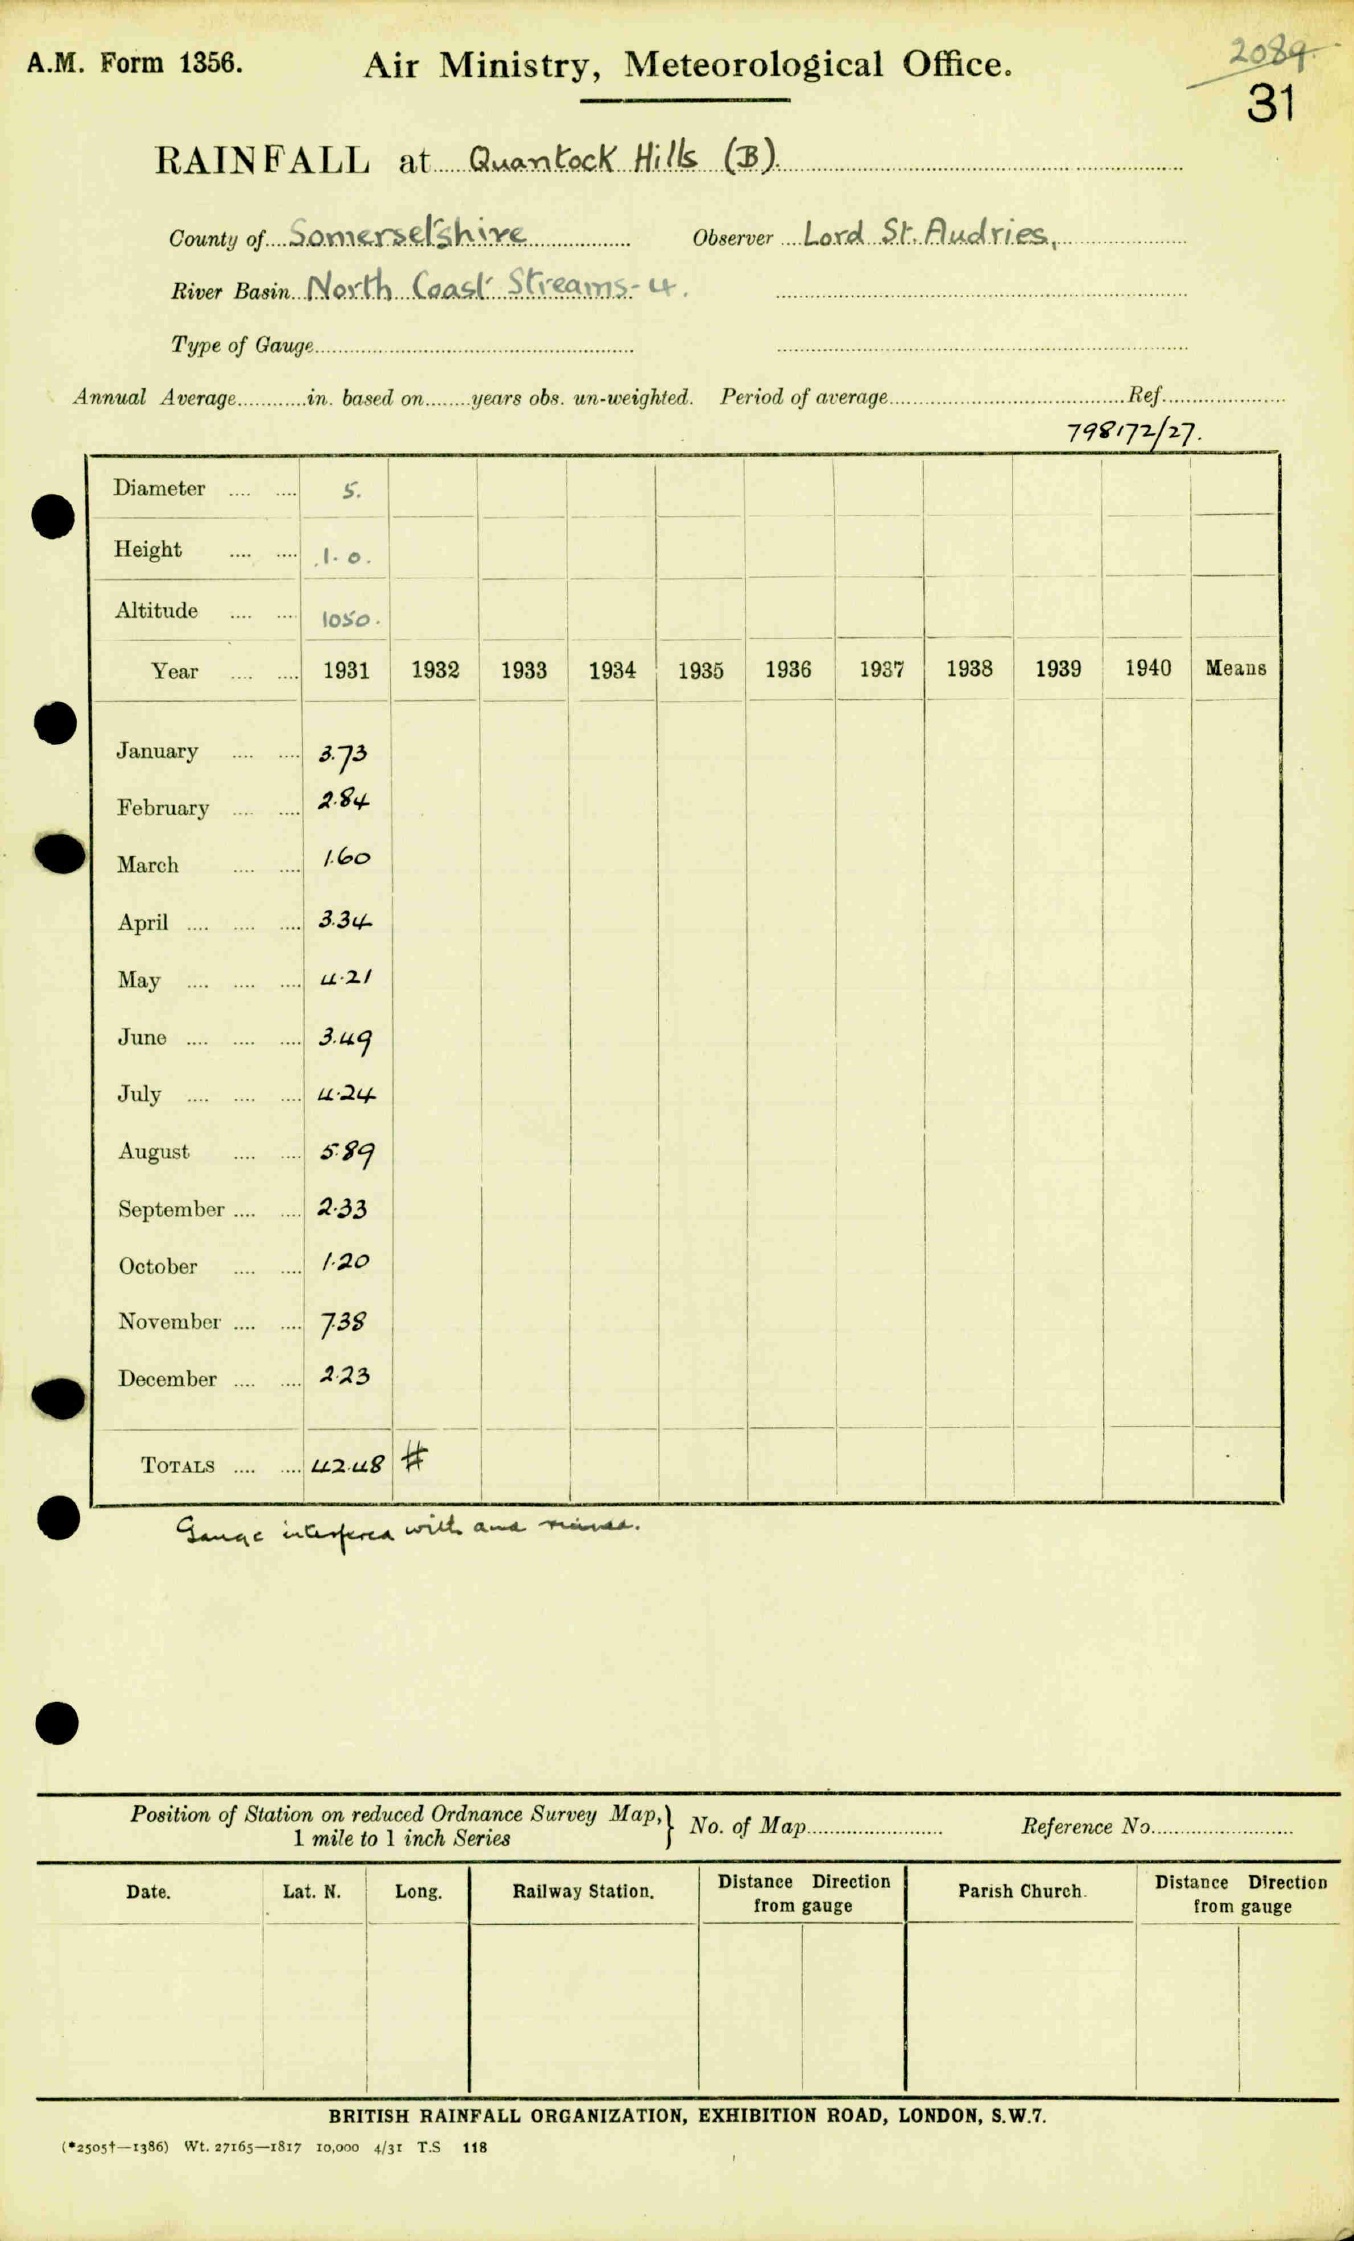 A.M. Form 1356.
Air Ministry, Meteorological Office.
2089
31
RAINFALL at Quantock Hills (B).
County of Somersetshire Observer Lord St. Audries,
River Basin North Coast Streams-4.
Type of Gauge
Annual Average in. based on years obs. un-weighted. Period of average Ref.
798172/27.
Diameter 5.
Height 1.0.
Altitude 1050.
Year 1931 1932 1933 1934 1935 1936 1937 1938 1939 1940 Means
January 3.73
February 2.84
March 1.60
April 3.34
May 4.21
June 3.49
July 4.24
August 5.89
September 2.33
October 1.20
November 7.38
December 2.23
TOTALS 42.48 #
Gauge interfered with and
Position of Station on reduced Ordnance Survey Map, } No. of Map Reference No.
1 mile to 1 inch Series
Date. Lat. N. Long. Railway Station. Distance Direction from gauge Parish Church. Distance Direction from gauge
BRITISH RAINFALL ORGANIZATION, EXHIBITION ROAD, LONDON, S.W.7.
(*2505†—1386) Wt. 27165—1817 10,000 4/31 T.S 118